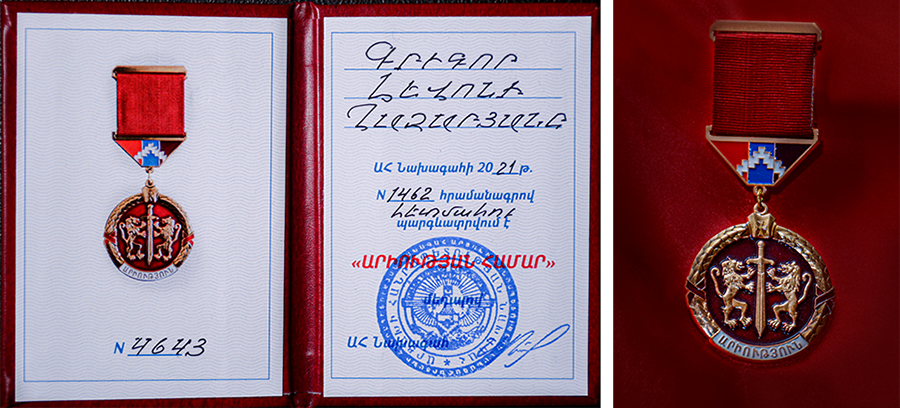 ԱՐԻՈՒԹՅՈՒՆ
N 4643
ԳՐԻԳՈՐ
ՂԵՎՈՆԴԻ
ՂԱԶԱՐՅԱՆԸ
ԱՀ Նախագահի 2021 թ.
N 1462 հրամանագրով
հետմահու
պարգևատրվում է
«ԱՐԻՈՒԹՅԱՆ ՀԱՄԱՐ»
մեդալով
ԱՀ Նախագահ
ԱՐԻՈՒԹՅՈՒՆ